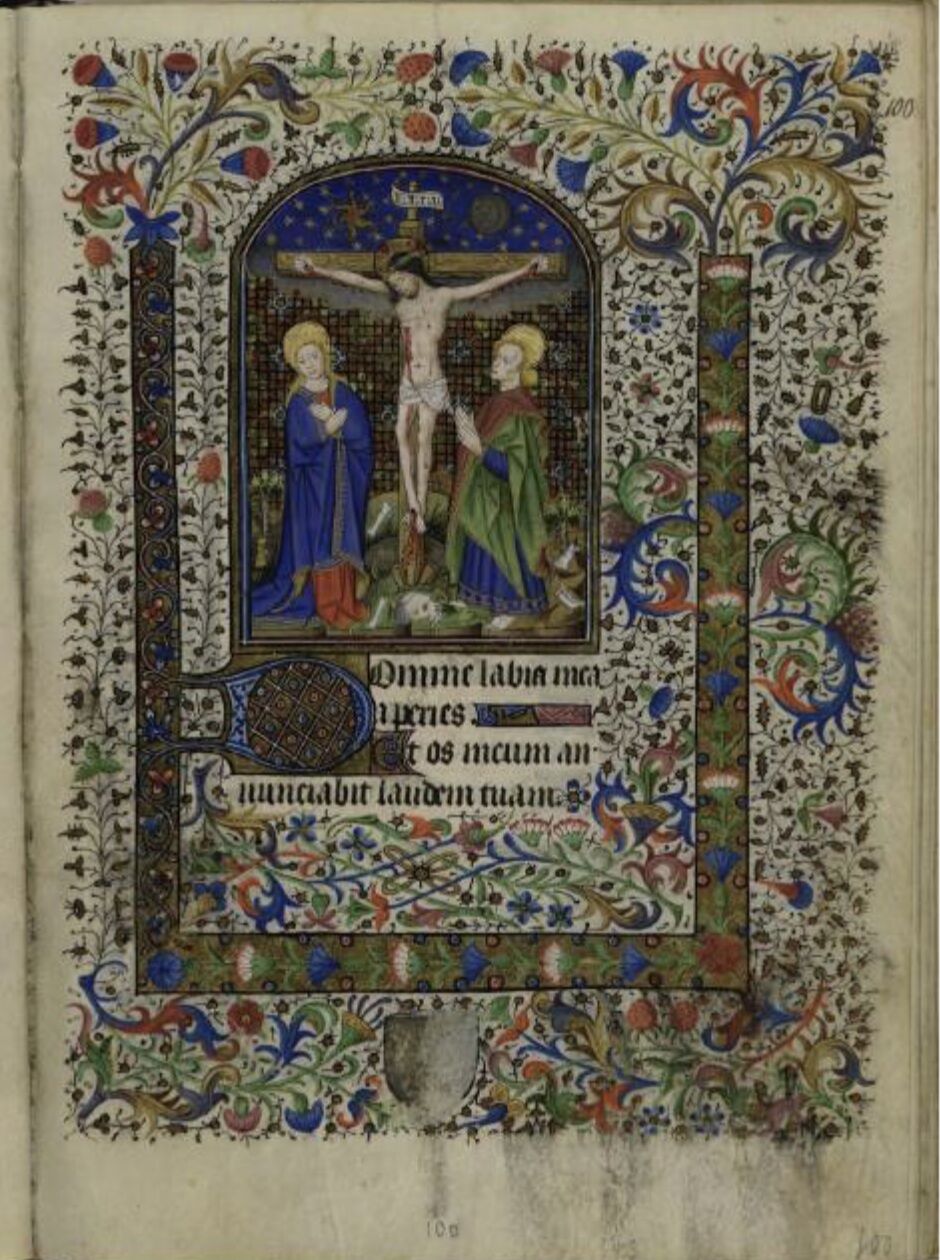 100
Domine labia mea
aperies
Et os meum an-
nunciabit laudem tuam
100